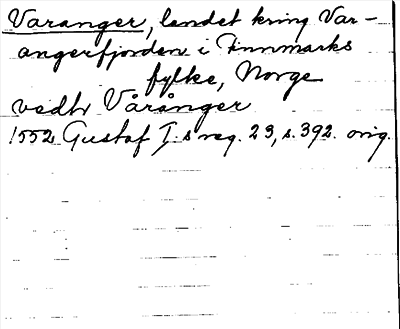 Varanger, landet kring Var-
angerfjorden i Finnmarks
fylke, Norge
vedtr Vårånger
1552 Gustaf I:s reg. 23, s. 392. orig.